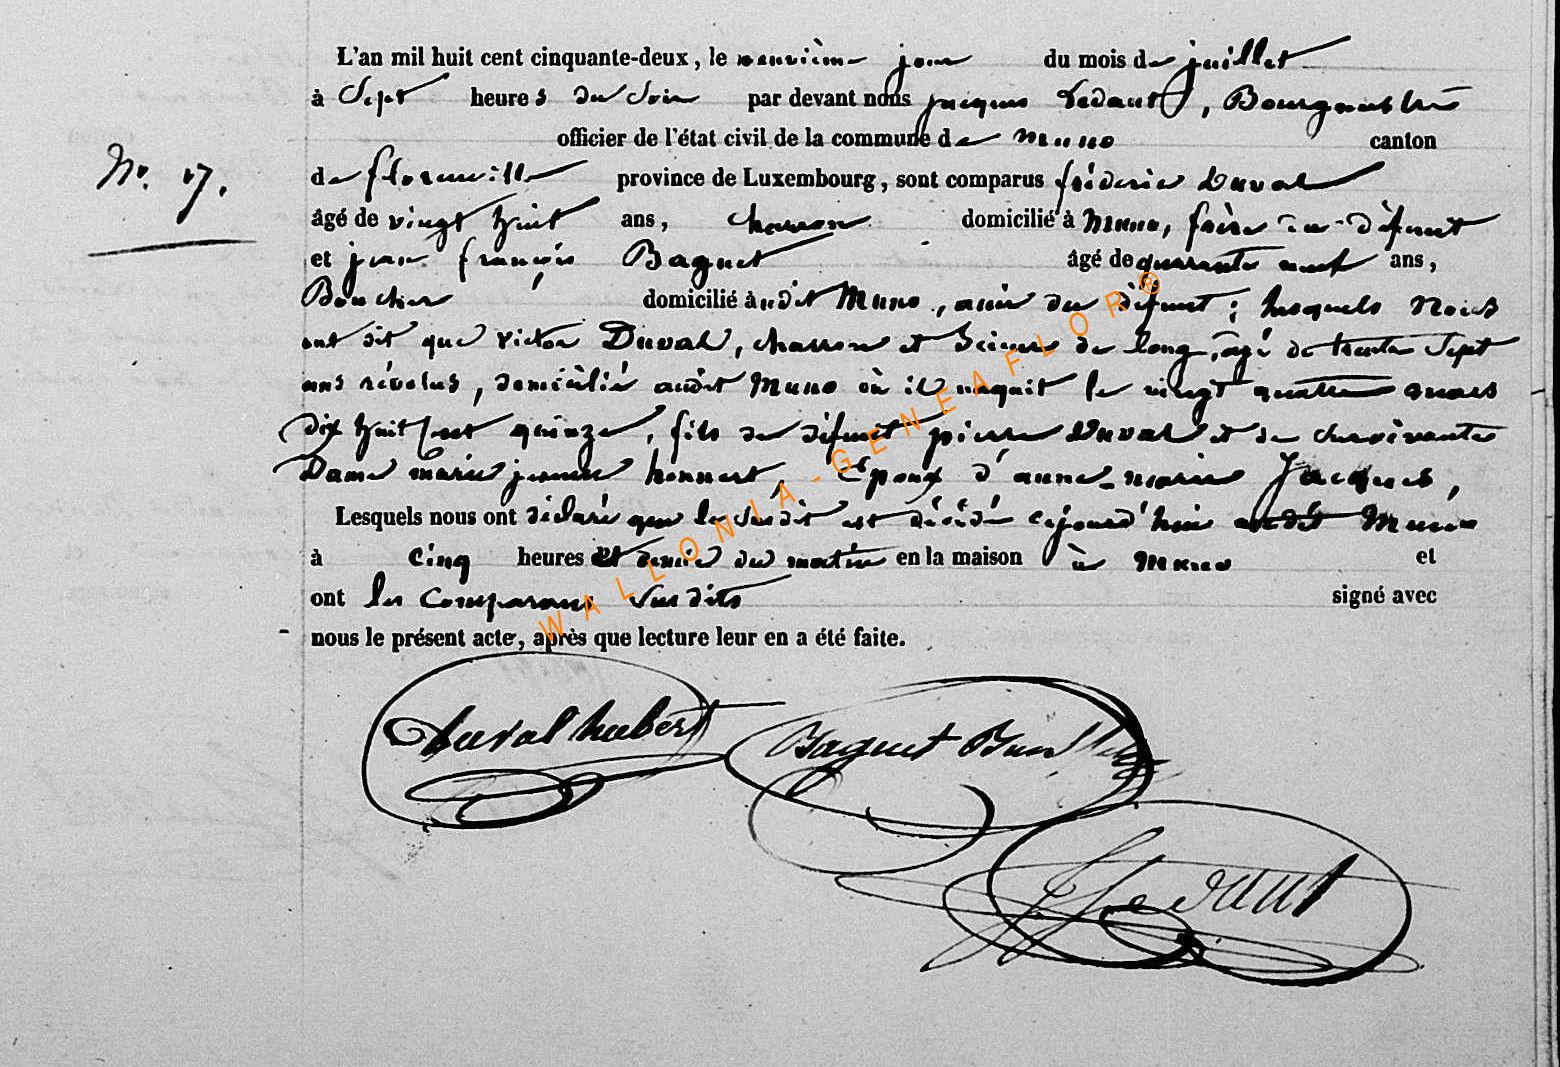 L'an mil huit cent cinquante-deux, le neuvième jour du mois de juillet
à Sept heures du Soir par devant nous jacques Ledant, Bourgmestre
officier de l'état civil de la commune de muno canton
N°. 17. de florenville province de Luxembourg, sont comparus fréderic Duval
âgé de vingt huit ans, charron domicilié à Muno, frère du défunt
et jean françois Baguet âgé de quarante neuf ans,
Boucher domicilié àudit Muno, ami du défunt; lesquels Nous
ont dit que victor Duval, charron et Scieur de long, âgé de trente Sept
ans révolus, domicilié audit Muno où il naquit le vingt quatre mars
dix huit Cent quinze, fils de défunt pierre Duval et de Survivante
Dame marie jeanne honnert, Epoux d'anne-marie Jacques,
Lesquels nous ont déclaré que le Susdit est décédé cejourd'hui audit Muno
à cinq heures et demie du matin en la maison à Muno et
ont les Comparans Susdits signé avec
nous le présent acte, après que lecture leur en a été faite.
Duval hubert Baguet
Ledant
WALLONIA-GENEAFLOR®